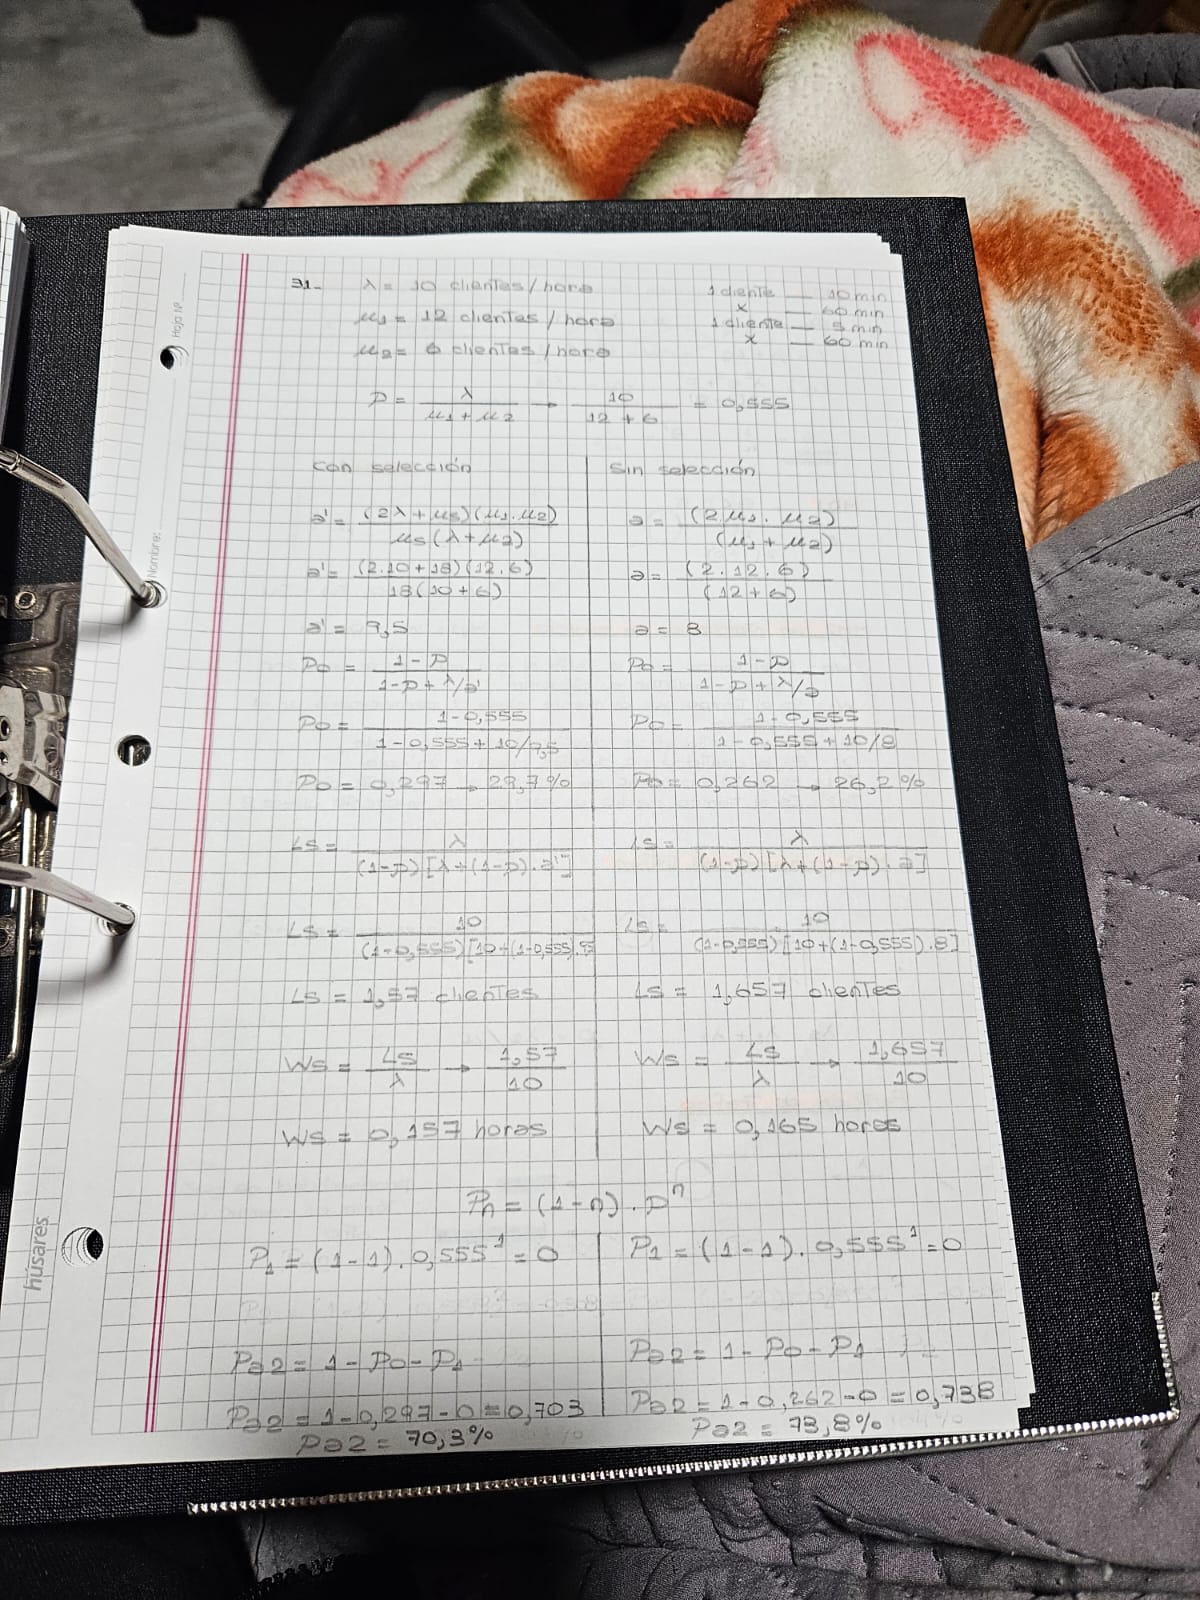 31- λ = 10 clientes/hora
μ1 = 12 clientes/hora
μ2 = 6 clientes/hora
1 cliente — 10 min
x — 60 min
1 cliente — 5 min
x — 60 min
P = λ / (μ1 + μ2) → 10 / (12 + 6) = 0,555
Con selección
a' = (2λ + μs)(μ1 . μ2) / μs(λ + μ2)
a' = (2.10 + 18)(12.6) / 18(10 + 6)
a' = 9,5
Po = 1 - P / 1 - P + λ/a'
Po = 1 - 0,555 / 1 - 0,555 + 10/9,5
Po = 0,297 → 29,7%
Ls = λ / (1-P)[λ+(1-P).a']
Ls = 10 / (1-0,555)[10+(1-0,555).9,5
Ls = 1,57 clientes
Ws = Ls / λ → 1,57 / 10
Ws = 0,157 horas
Sin selección
a = (2μ1 . μ2) / (μ1 + μ2)
a = (2.12.6) / (12 + 6)
a = 8
Po = 1 - P / 1 - P + λ/a
Po = 1 - 0,555 / 1 - 0,555 + 10/8
Po = 0,262 → 26,2%
Ls = λ / (1-P)[λ+(1-P).a]
Ls = 10 / (1-0,555)[10+(1-0,555).8]
Ls = 1,657 clientes
Ws = Ls / λ → 1,657 / 10
Ws = 0,165 horas
Pn = (1-n) . Pⁿ
P1 = (1-1) . 0,555¹ = 0
Pa2 = 1 - Po - P1
Pa2 = 1 - 0,297 - 0 = 0,703
Pa2 = 70,3%
P1 = (1-1) . 0,555¹ = 0
Pa2 = 1 - Po - P1
Pa2 = 1 - 0,262 - 0 = 0,738
Pa2 = 73,8%
Hoja Nº
Nombre:
húsares